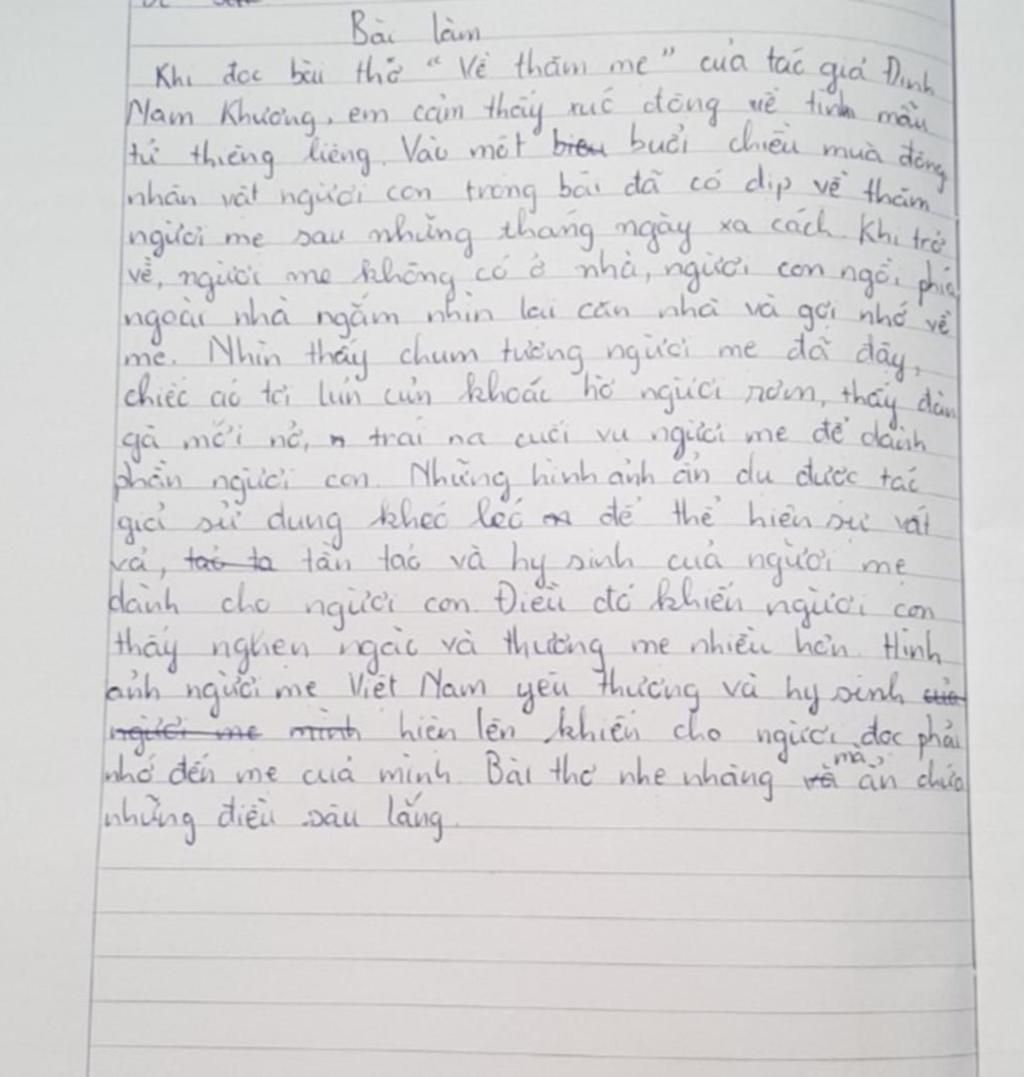 Bài làm
Khi đọc bài thơ "Về thăm mẹ" của tác giả Đinh
Nam Khương, em cảm thấy xúc động về tình mẫu
tử thiêng liêng. Vào một buổi chiều mùa đông
nhân vật người con trong bài đã có dịp về thăm
người mẹ sau những tháng ngày xa cách. Khi trở
về, người mẹ không có ở nhà, người con ngồi phía
ngoài nhà ngắm nhìn lại căn nhà và gợi nhớ về
mẹ. Nhìn thấy chum tương người mẹ đã đậy,
chiếc áo tơi lủn củn khoác hờ người rơm, thấy đàn
gà mới nở, trái na cuối vụ người mẹ để dành
phần người con. Những hình ảnh ẩn dụ được tác
giả sử dụng khéo léo để thể hiện sự vất
vả, tần tảo và hy sinh của người mẹ
dành cho người con. Điều đó khiến người con
thấy nghẹn ngào và thương mẹ nhiều hơn. Hình
ảnh người mẹ Việt Nam yêu thương và hy sinh
hiện lên khiến cho người đọc phải
nhớ đến mẹ của mình. Bài thơ nhẹ nhàng mà ẩn chứa
những điều sâu lắng.